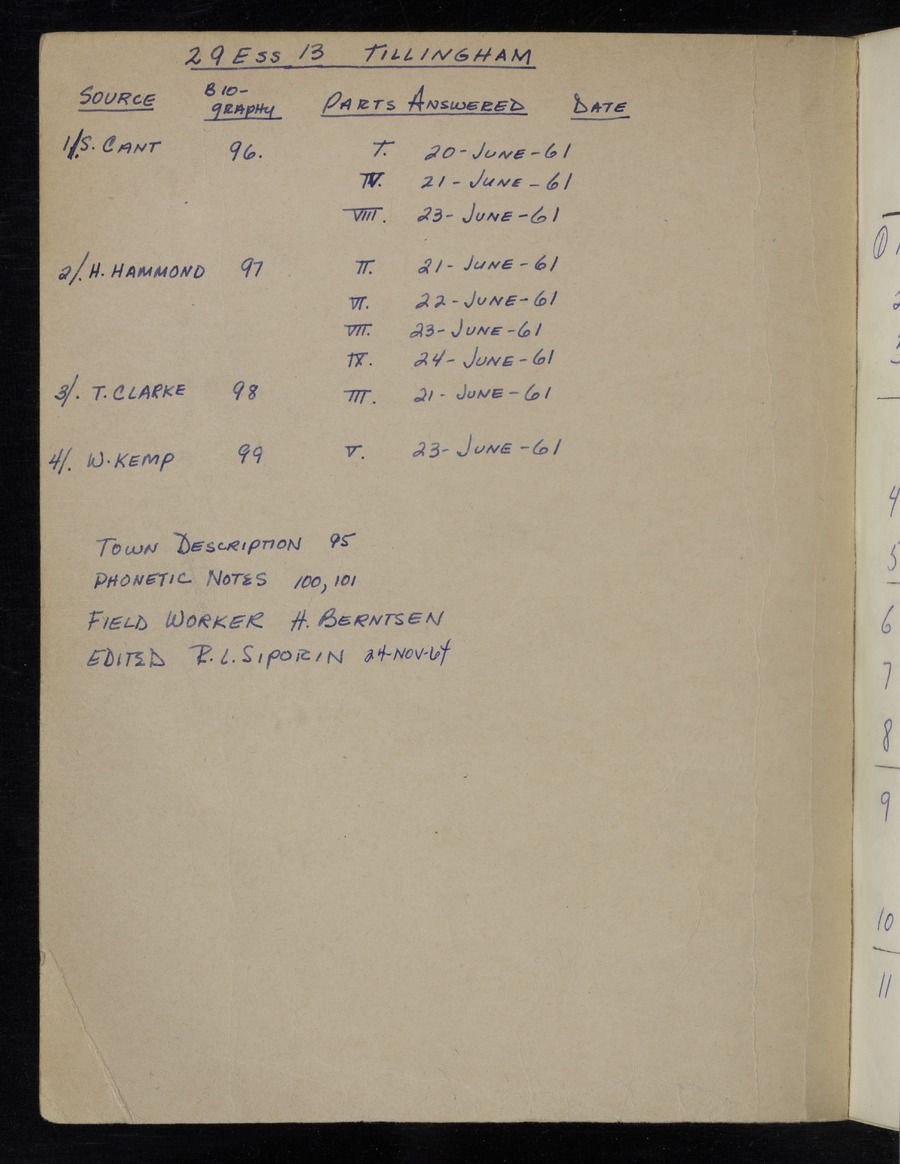 29 Ess 13 TILLINGHAM
SOURCE BIO-GRAPHY PARTS ANSWERED DATE
1/. S. CANT 96. I. 20-JUNE-61
IV. 21-JUNE-61
VIII. 23-JUNE-61
2/. H. HAMMOND 97 II. 21-JUNE-61
VI. 22-JUNE-61
VII. 23-JUNE-61
IX. 24-JUNE-61
3/. T. CLARKE 98 III. 21-JUNE-61
4/. W. KEMP 99 V. 23-JUNE-61
TOWN DESCRIPTION 95
PHONETIC NOTES 100, 101
FIELD WORKER H. BERNTSEN
EDITED R. L. SIPORIN 24-NOV-64
1
4
5
6
7
8
9
10
11